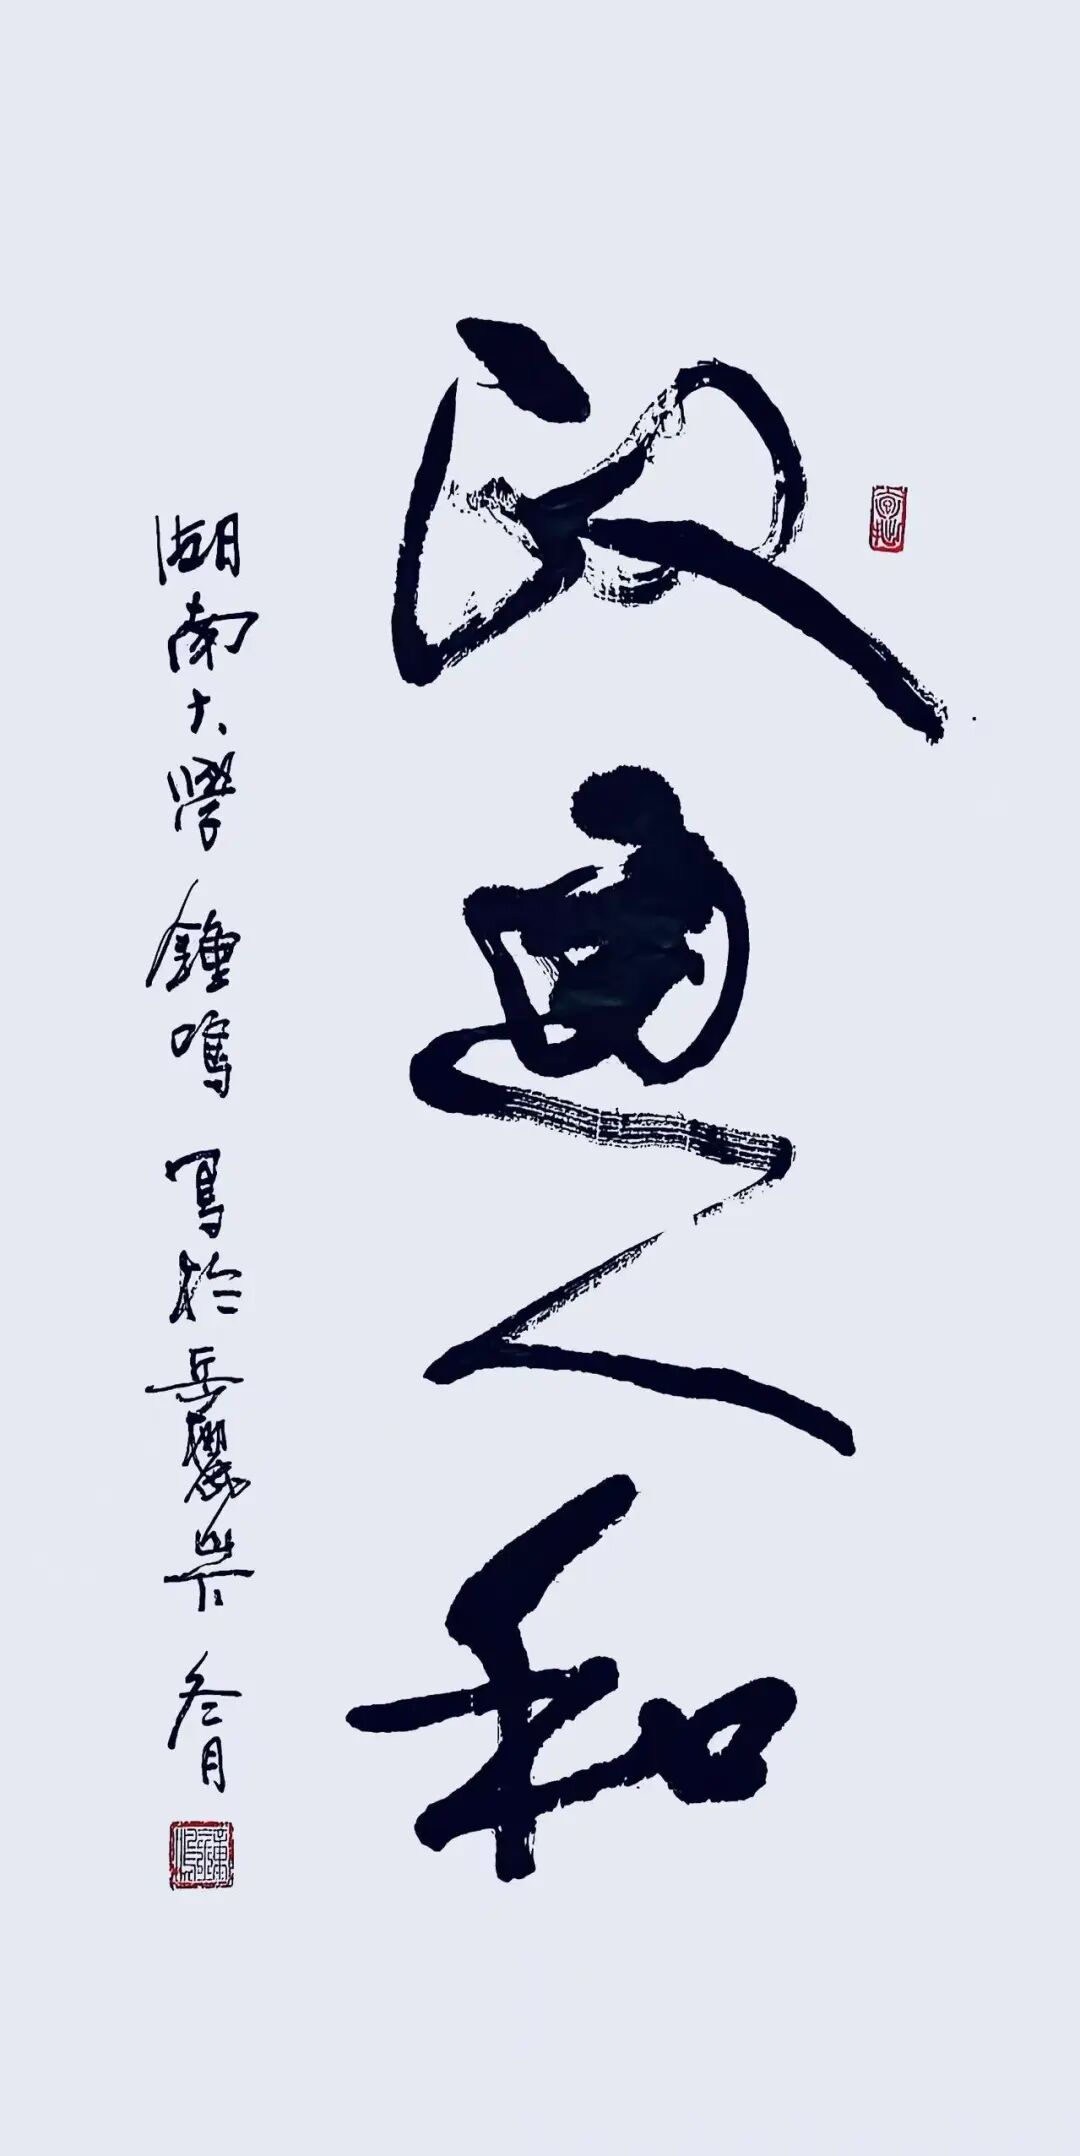 政通人和
湖南大學 鍾鳴 寫於岳麓山下 冬月